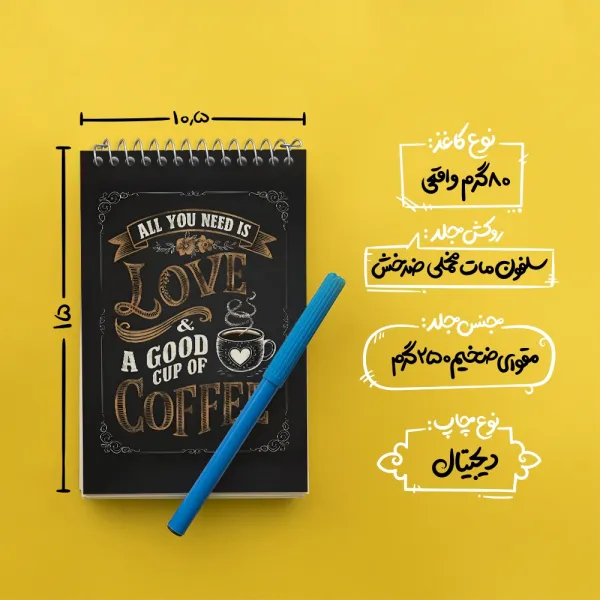 ۱۰٫۵
۱۵
ALL YOU NEED IS
LOVE
&
A GOOD
CUP OF
COFFEE
نوع کاغذ:
۸۰گرم واقعی
روکش جلد:
سلفون مات مخملی ضدخش
جنس جلد:
مقوای ضخیم ۲۵۰گرم
نوع چاپ:
دیجیتال